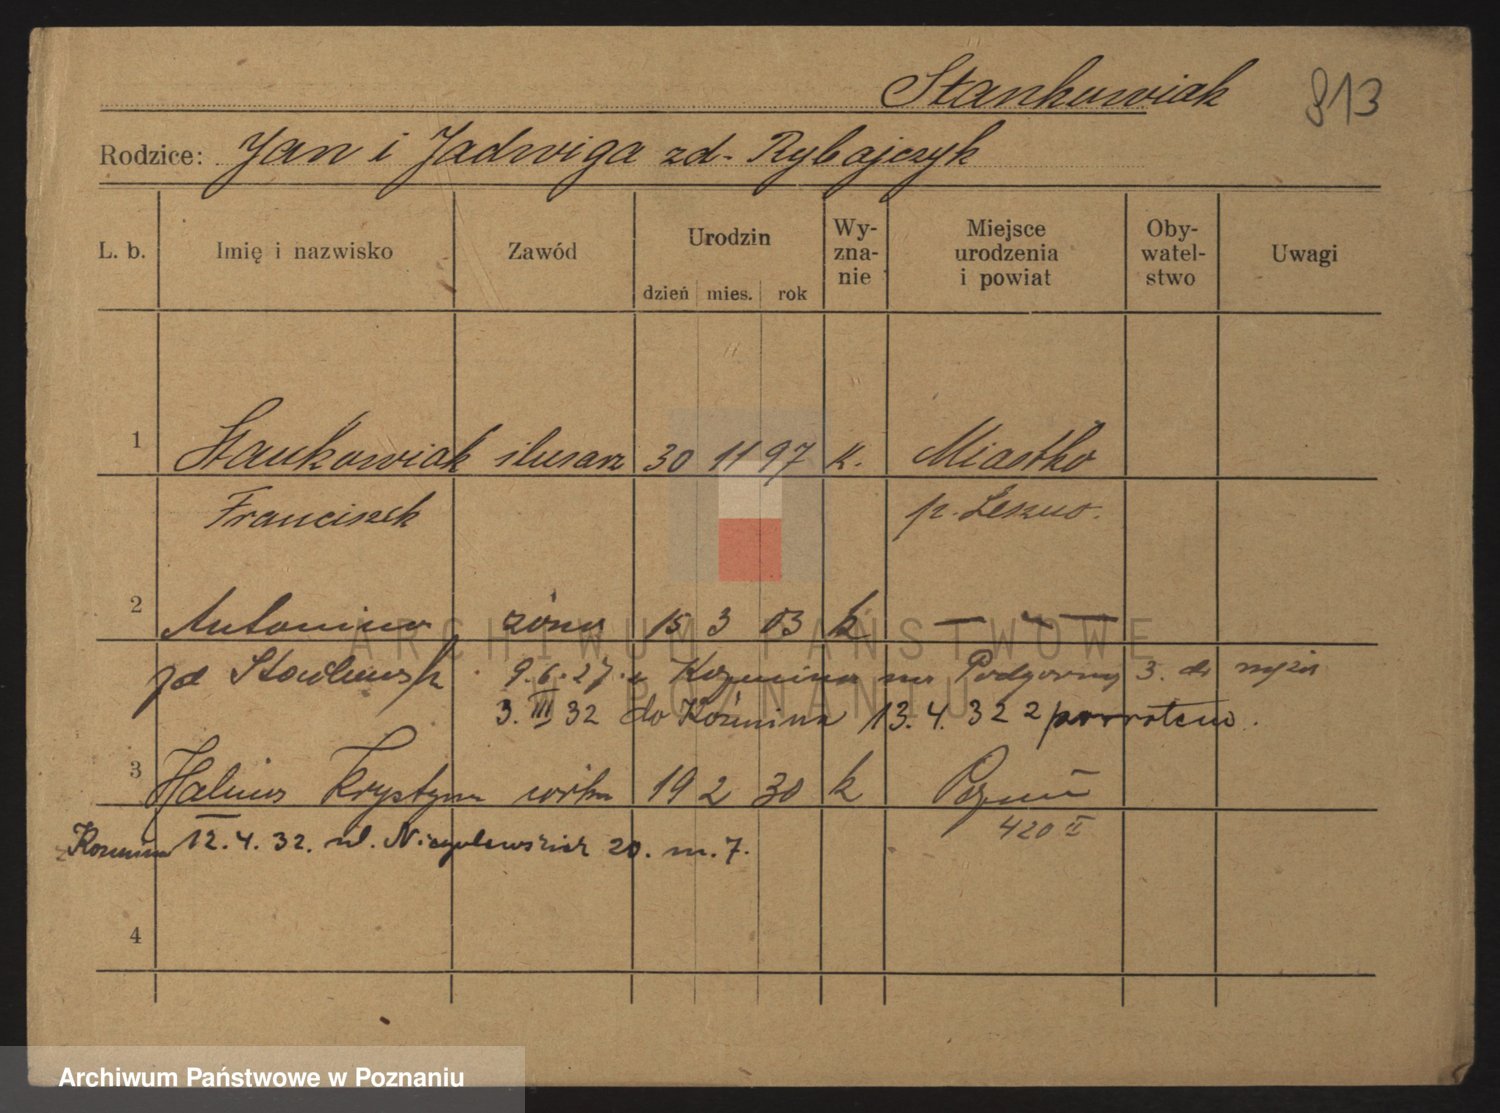 Stankowiak 813
Rodzice: Jan i Jadwiga zd. Rybajczyk
L. b. Imię i nazwisko Zawód Urodzin dzień mies. rok Wy-zna-nie Miejsce urodzenia i powiat Oby-watel-stwo Uwagi
1 Stankowiak ślusarz 30 11 97 k. Miastko
Franciszek p. Leszno.
2 Antonina żona 15 3 03 k — " —
zd 9.6.27. z Koźmina na Podgórną 3. do męża
3. III 32 do Koźmina 13.4.32 z powrotem.
3 Halina Krystyna córka 19 2 30 k Poznań
420 II
Koźmin 12.4.32. ul. Niegolewskich 20. m. 7.
4
ARCHIWUM PAŃSTWOWE
W POZNANIU
Archiwum Państwowe w Poznaniu